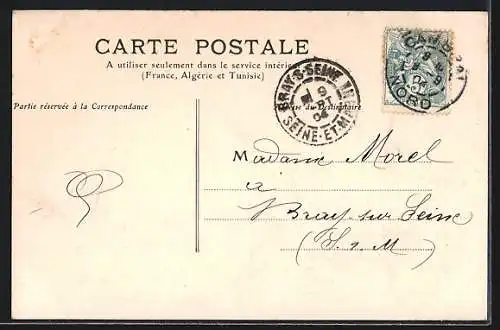 CARTE POSTALE
A utiliser seulement dans le service intérieur
(France, Algérie et Tunisie)
Partie réservée à la Correspondance
du Destinataire
BRAY-S-SEINE
9
04
SEINE-ET-M
NORD
Madame Morel
à
Bray sur Seine
(S. & M)